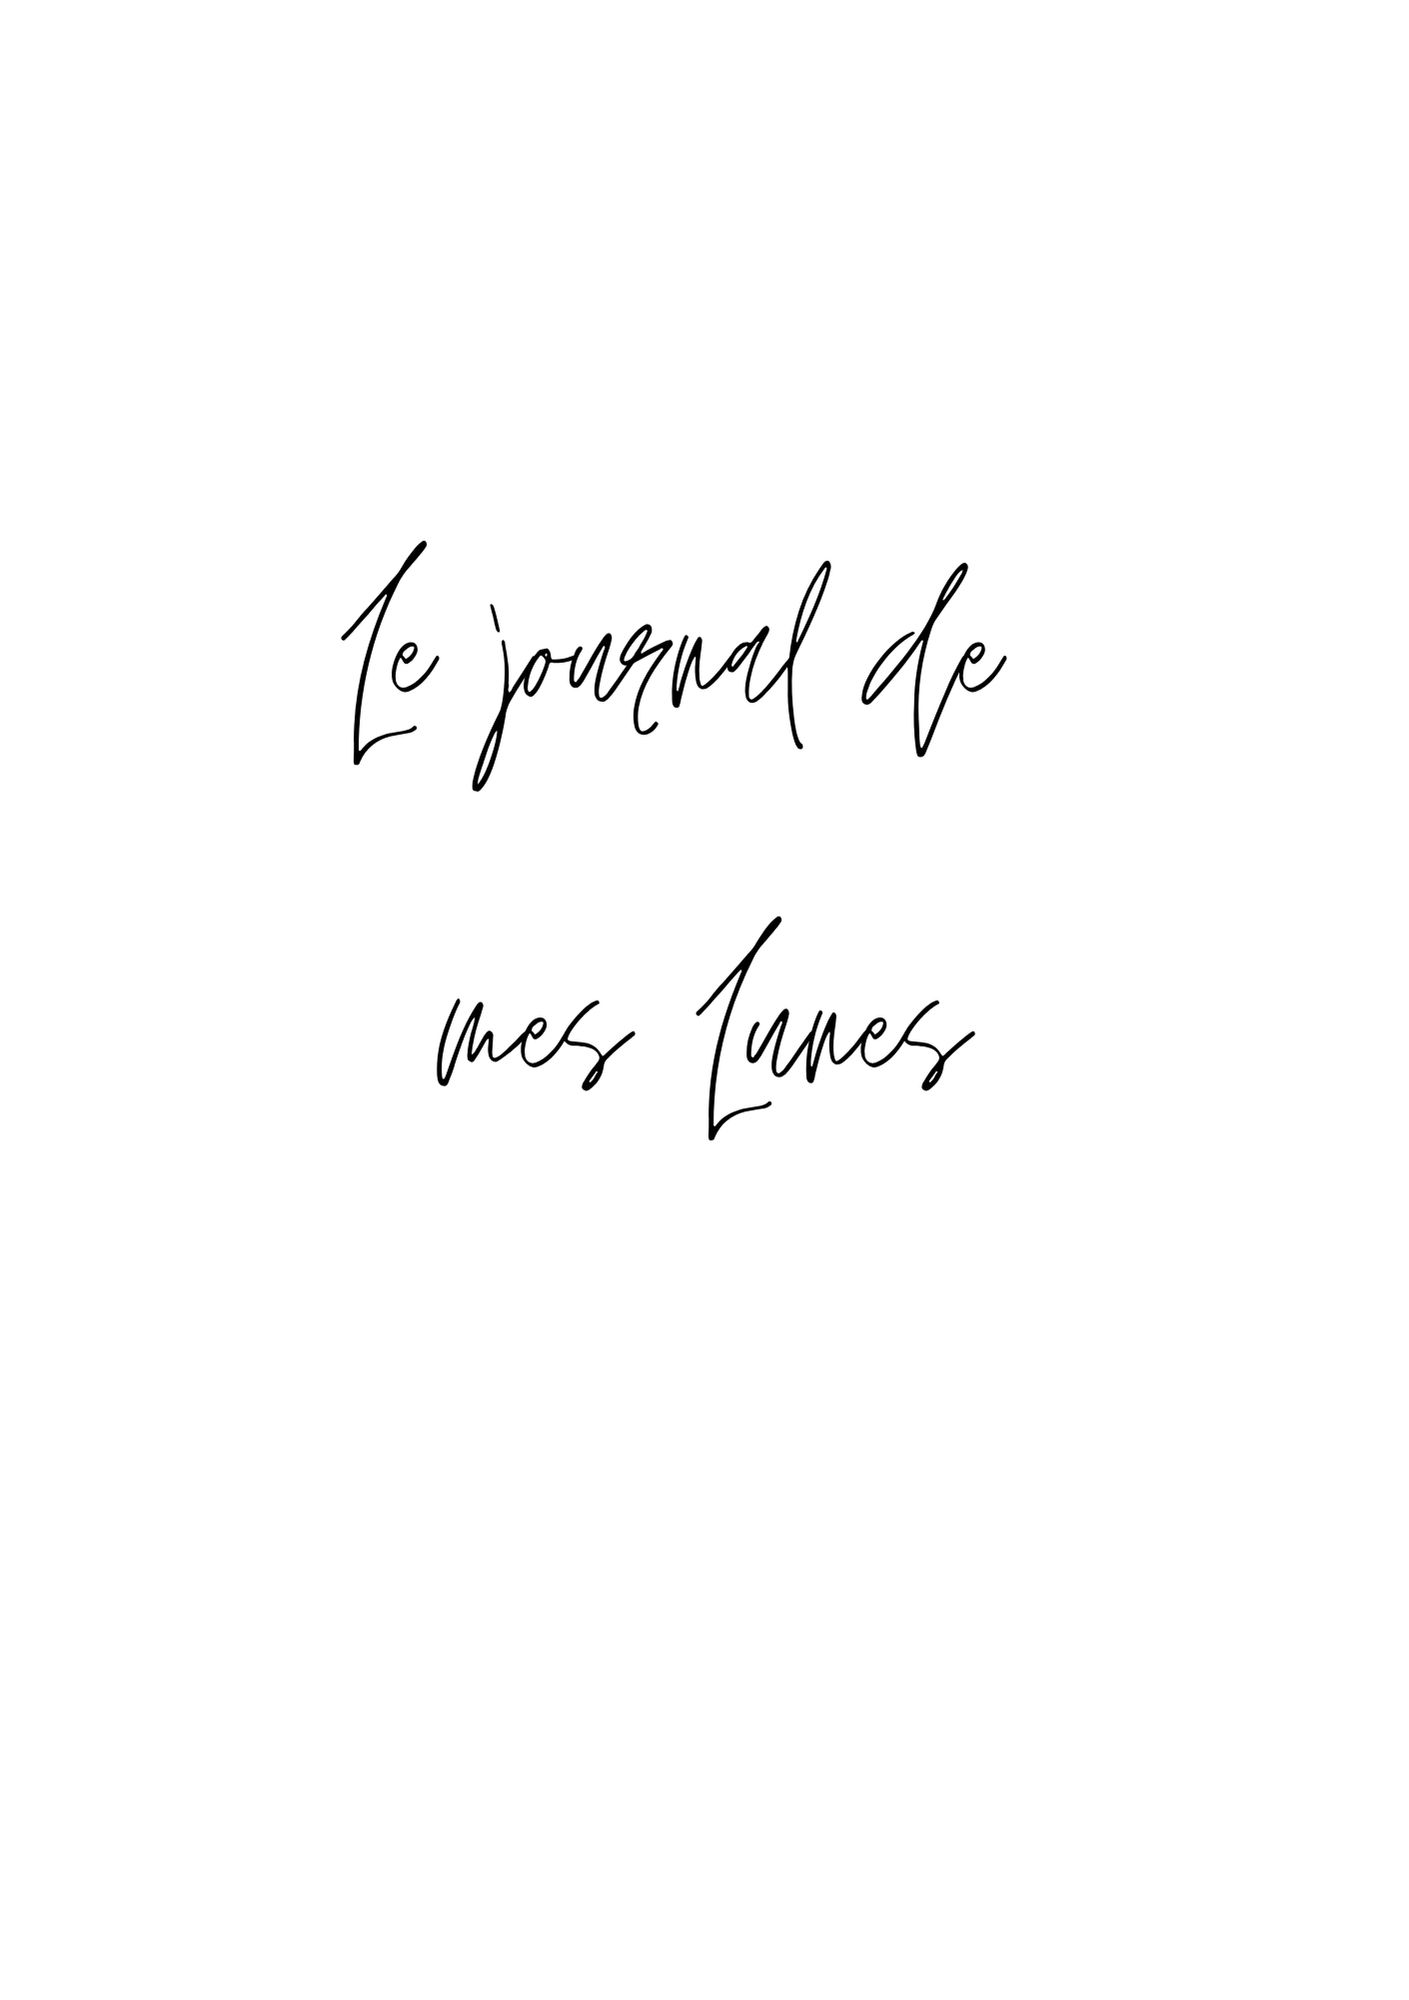 Le journal de
mes Lunes